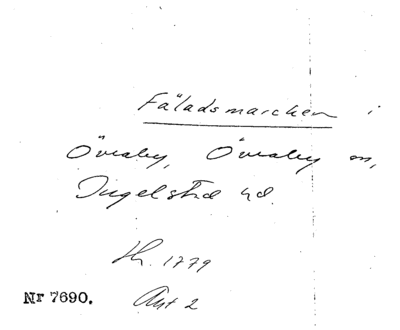 Fäladsmarcken i
Övraby, Övraby sn,
Ingelstad hd.
Hr. 1779
Akt 2
Nr 7690.